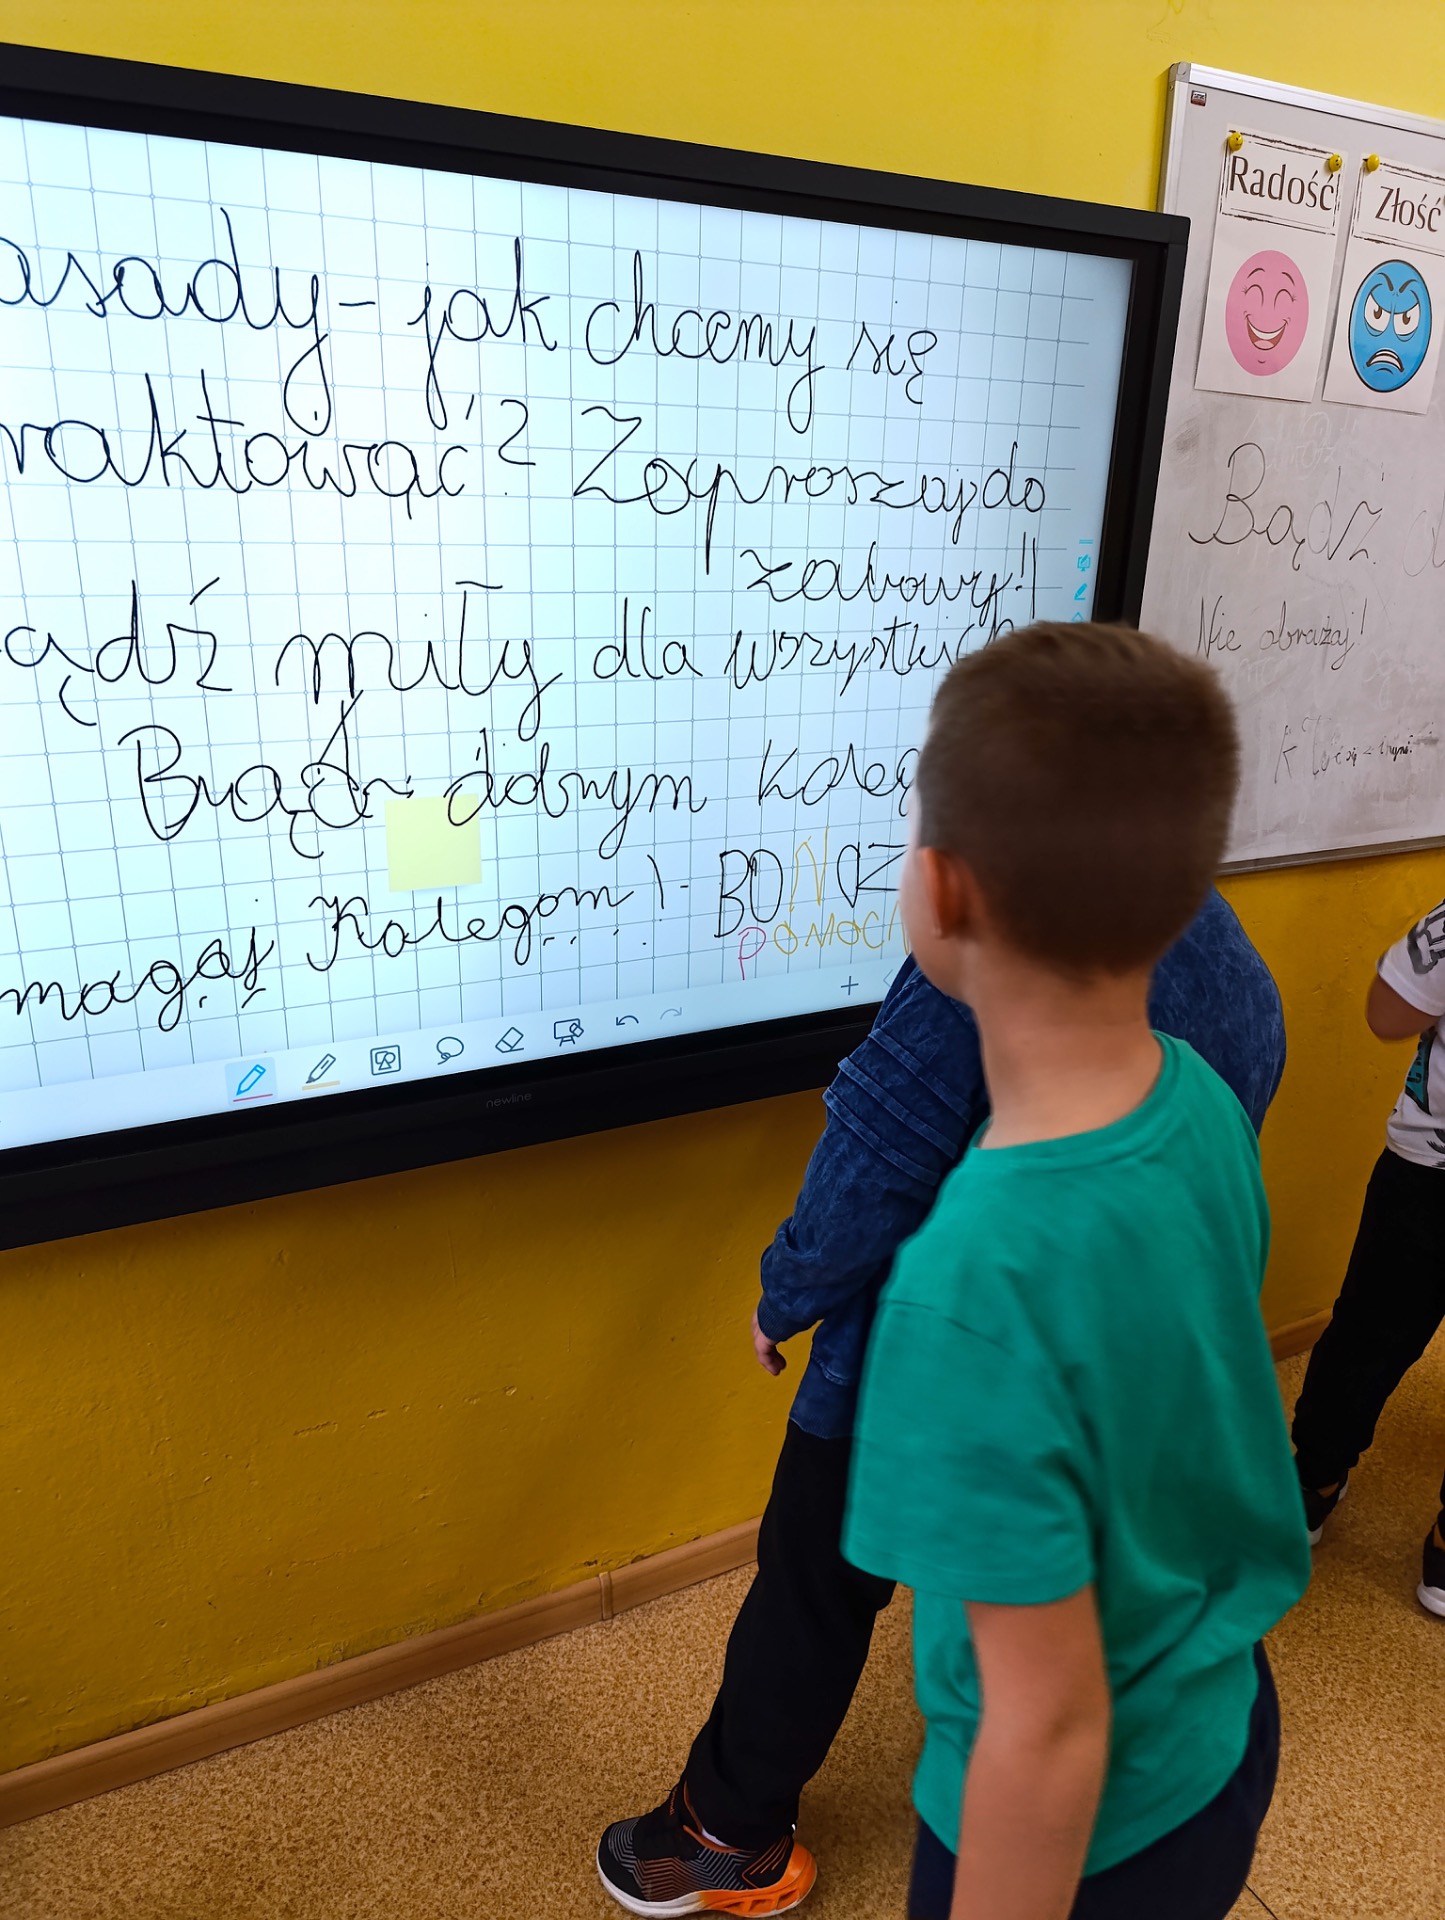 asady - jak chcemy się
raktować? Zapraszaj do
zabawy!
ądź miły dla wszystkich
Bądź dobrym koleg
magaj Kolegom!
POMOCN
newline
Radość
Złość
Bądź
Nie obrażaj!